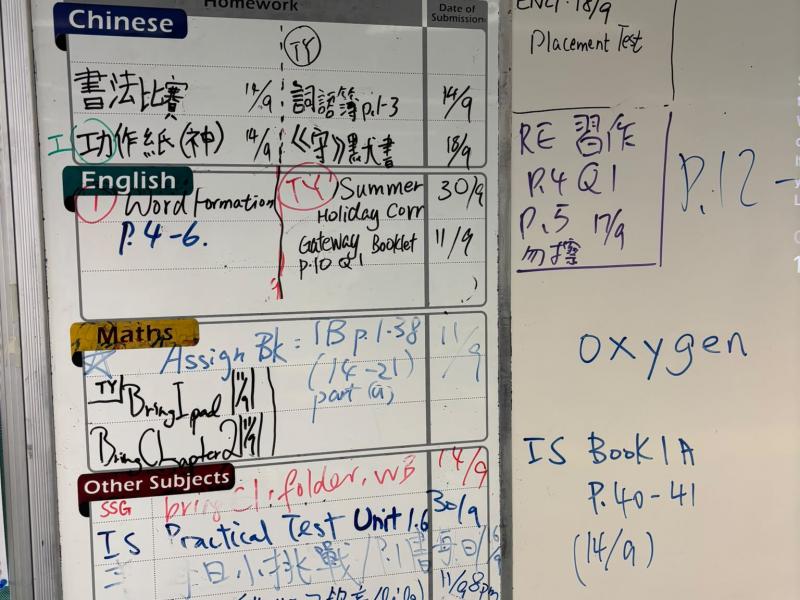 Homework
Date of
Submission
Chinese
TY
書法比賽 14/9
詞語簿p.1-3 14/9
I 功作紙(神) 14/9
《守》默書 18/9
English
Word Formation
P.4-6.
TY Summer 30/9
Holiday Corr
Gateway Booklet 11/9
p.10 Q1
Maths
Assign Bk = 1B p.1-38 11/9
(14-21)
part (a)
TY Bring Ipad 11/9
Bring Chapter 2 11/9
Other Subjects
SSG bring cl. folder, WB 14/9
IS Practical Test Unit 1.6 30/9
每日小挑戰/P.1書
11/9 8pm
18/9
Placement Test
RE 習作
P.4 Q1
P.5 17/9
勿擦
P.12 -
oxygen
IS Book 1A
P.40-41
(14/9)